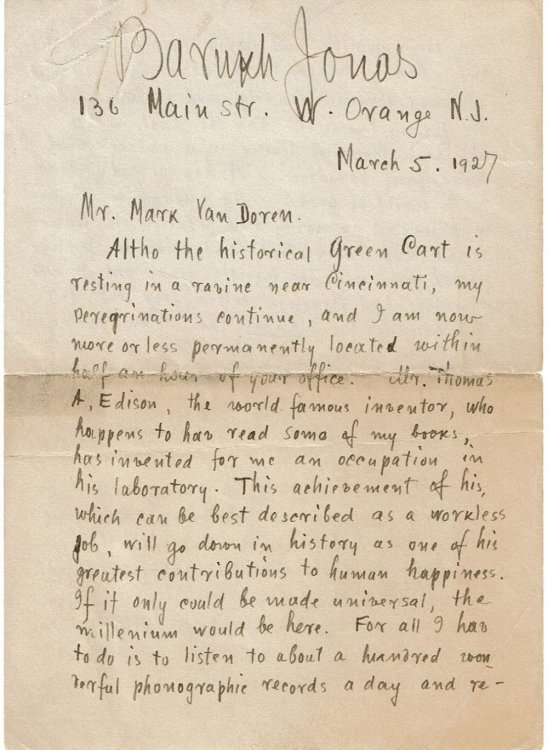 Barukh Jonas
136 Main str. W. Orange N.J.
March 5. 1927
Mr. Mark Van Doren.
Altho the historical Green Cart is
resting in a ravine near Cincinnati, my
peregrinations continue, and I am now
more or less permanently located within
half an hour of your office. Mr. Thomas
A. Edison, the world famous inventor, who
happens to hav read some of my books,
has invented for me an occupation in
his laboratory. This achievement of his,
which can be best described as a workless
job, will go down in history as one of his
greatest contributions to human happiness.
If it only could be made universal, the
millenium would be here. For all I hav
to do is to listen to about a hundred won
derful phonographic records a day and re-